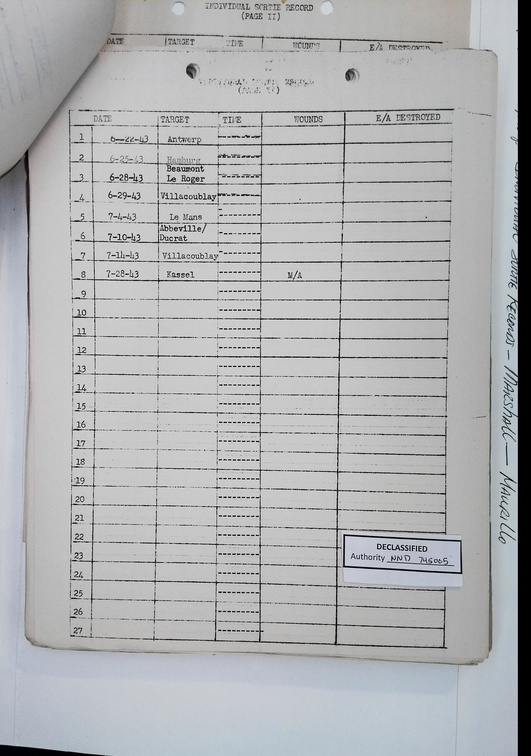 INDIVIDUAL SORTIE RECORD
(PAGE II)
DATE TARGET TIME WOUNDS E/A DESTROYED
DATE TARGET TIME WOUNDS E/A DESTROYED
1 6-22-43 Antwerp
2 6-25-43 Hamburg
3 6-28-43 Beaumont
Le Roger
4 6-29-43 Villacoublay
5 7-4-43 Le Mans
6 7-10-43 Abbeville/
Ducrat
7 7-14-43 Villacoublay
8 7-28-43 Kassel M/A
9
10
11
12
13
14
15
16
17
18
19
20
21
22
23
24
25
26
27
DECLASSIFIED
Authority NND 745005
Individual Sortie Records - Marshall - Maurillo